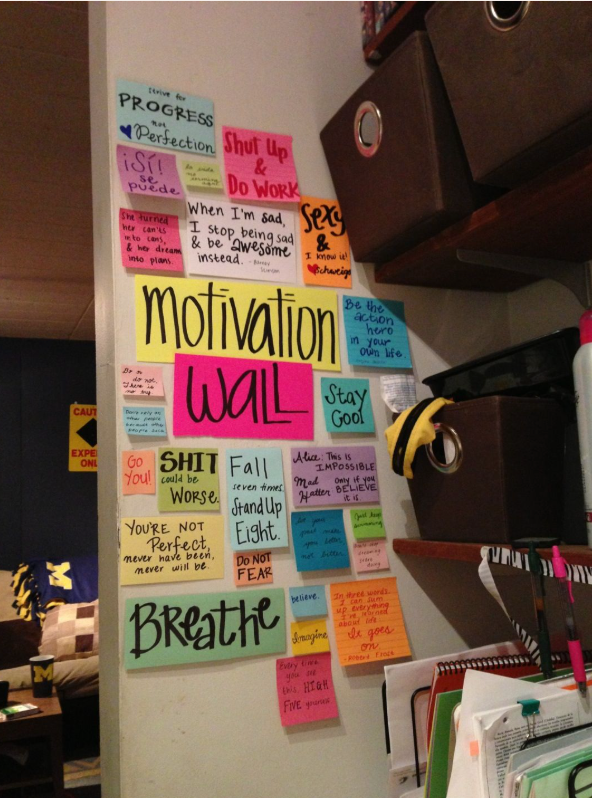 Strive for
PROGRESS
not
Perfection
Shut Up
&
Do WORK
¡Sí!
se
puede
She turned
her can'ts
into cans,
& her dreams
into plans.
When I'm sad,
I stop being sad
& be awesome
instead.
Sexy
&
I know it!
MOTIVATION
WALL
Be the
action
hero
in your
own life.
Stay
Cool
Do or
do not.
There is
no try
Go
You!
SHIT
could be
Worse.
Fall
seven times,
Stand Up
Eight.
Alice: This is
IMPOSSIBLE
Mad Only if you
Hatter BELIEVE
it is.
YOU'RE NOT
Perfect,
never have been,
never will be.
DO NOT
FEAR
Let your
past make
you better
not bitter.
BREATHE
believe.
Imagine
In three words
I can sum
up everything
I've learned
about life
It goes
on.
- Robert Frost
Every time
you
this, HIGH
FIVE
CAUT
EXPE
ONL
M
M